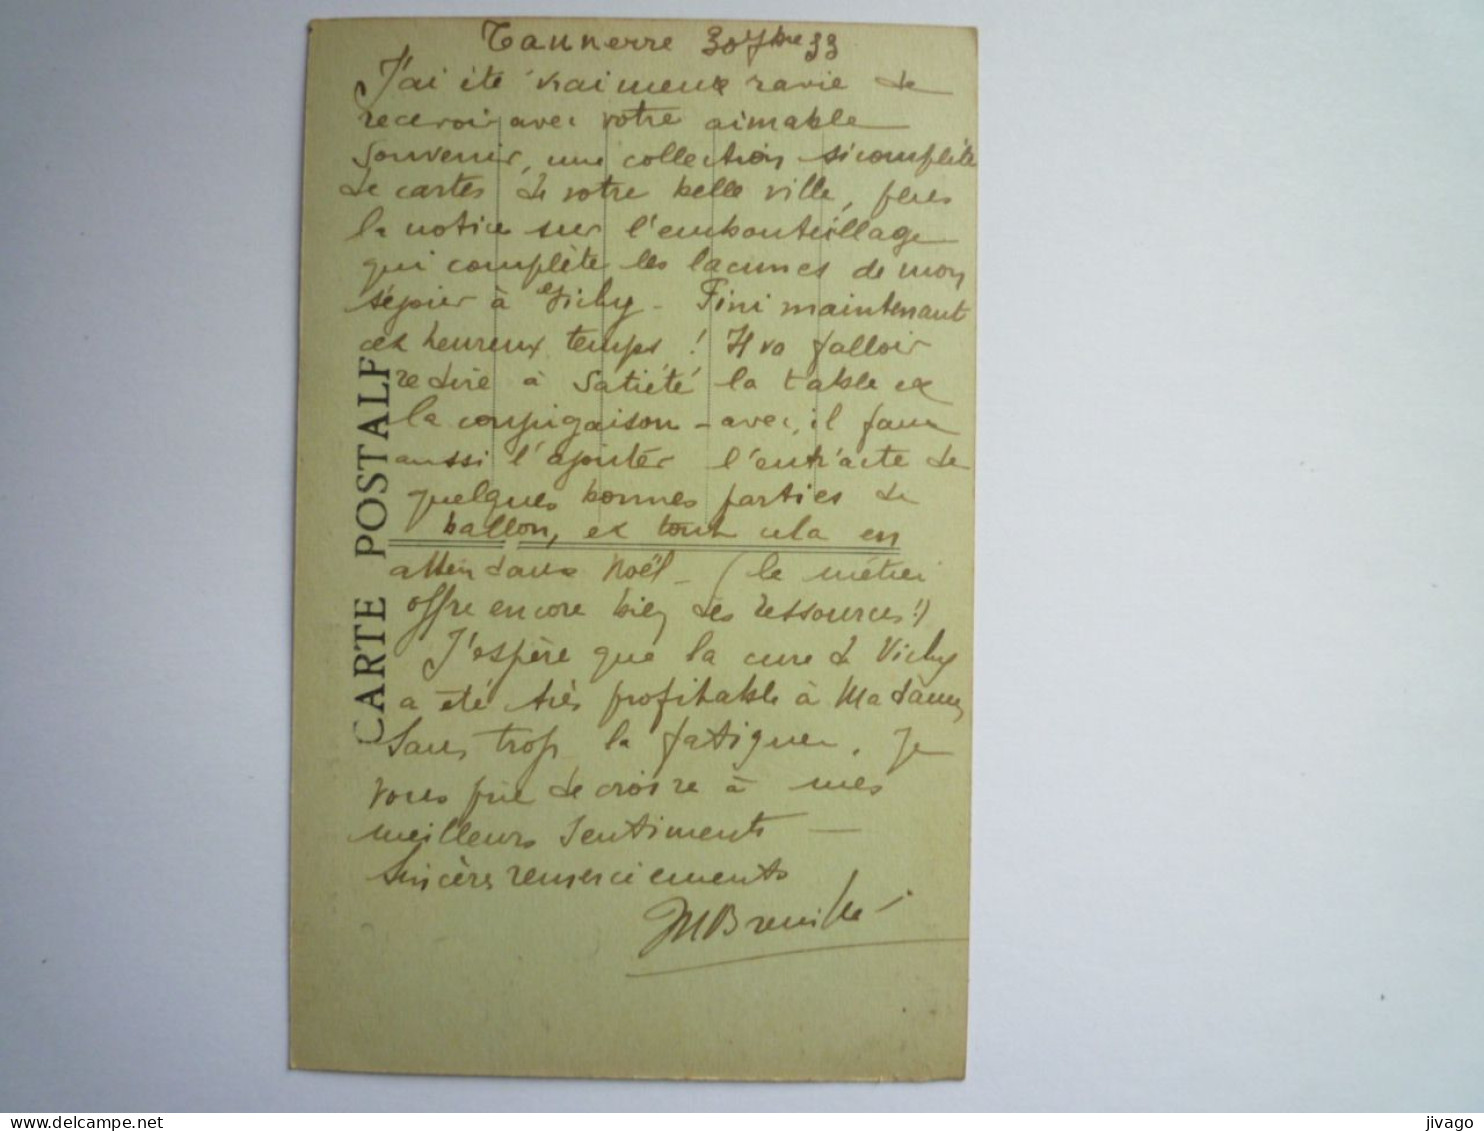 Tannerre 30 7bre 33
J'ai été vraiment ravie de
recevoir avec votre aimable
souvenir, une collection si complète
de cartes de votre belle ville, plus
la notice sur l'embouteillage
qui complète les lacunes de mon
séjour à Vichy - Fini maintenant
ces heureux temps ! Il va falloir
redire à satiété la table et
la conjugaison - avec, il faut
aussi l'ajouter l'entr'acte de
quelques bonnes parties de
ballon, et tout cela en
attendant Noël - (le métier
offre encore bien des ressources !)
J'espère que la cure de Vichy
a été très profitable à Madame
sans trop la fatiguer. Je
vous prie de croire à mes
meilleurs sentiments —
Sincères remerciements
CARTE POSTALE
delcampe.net
jivago